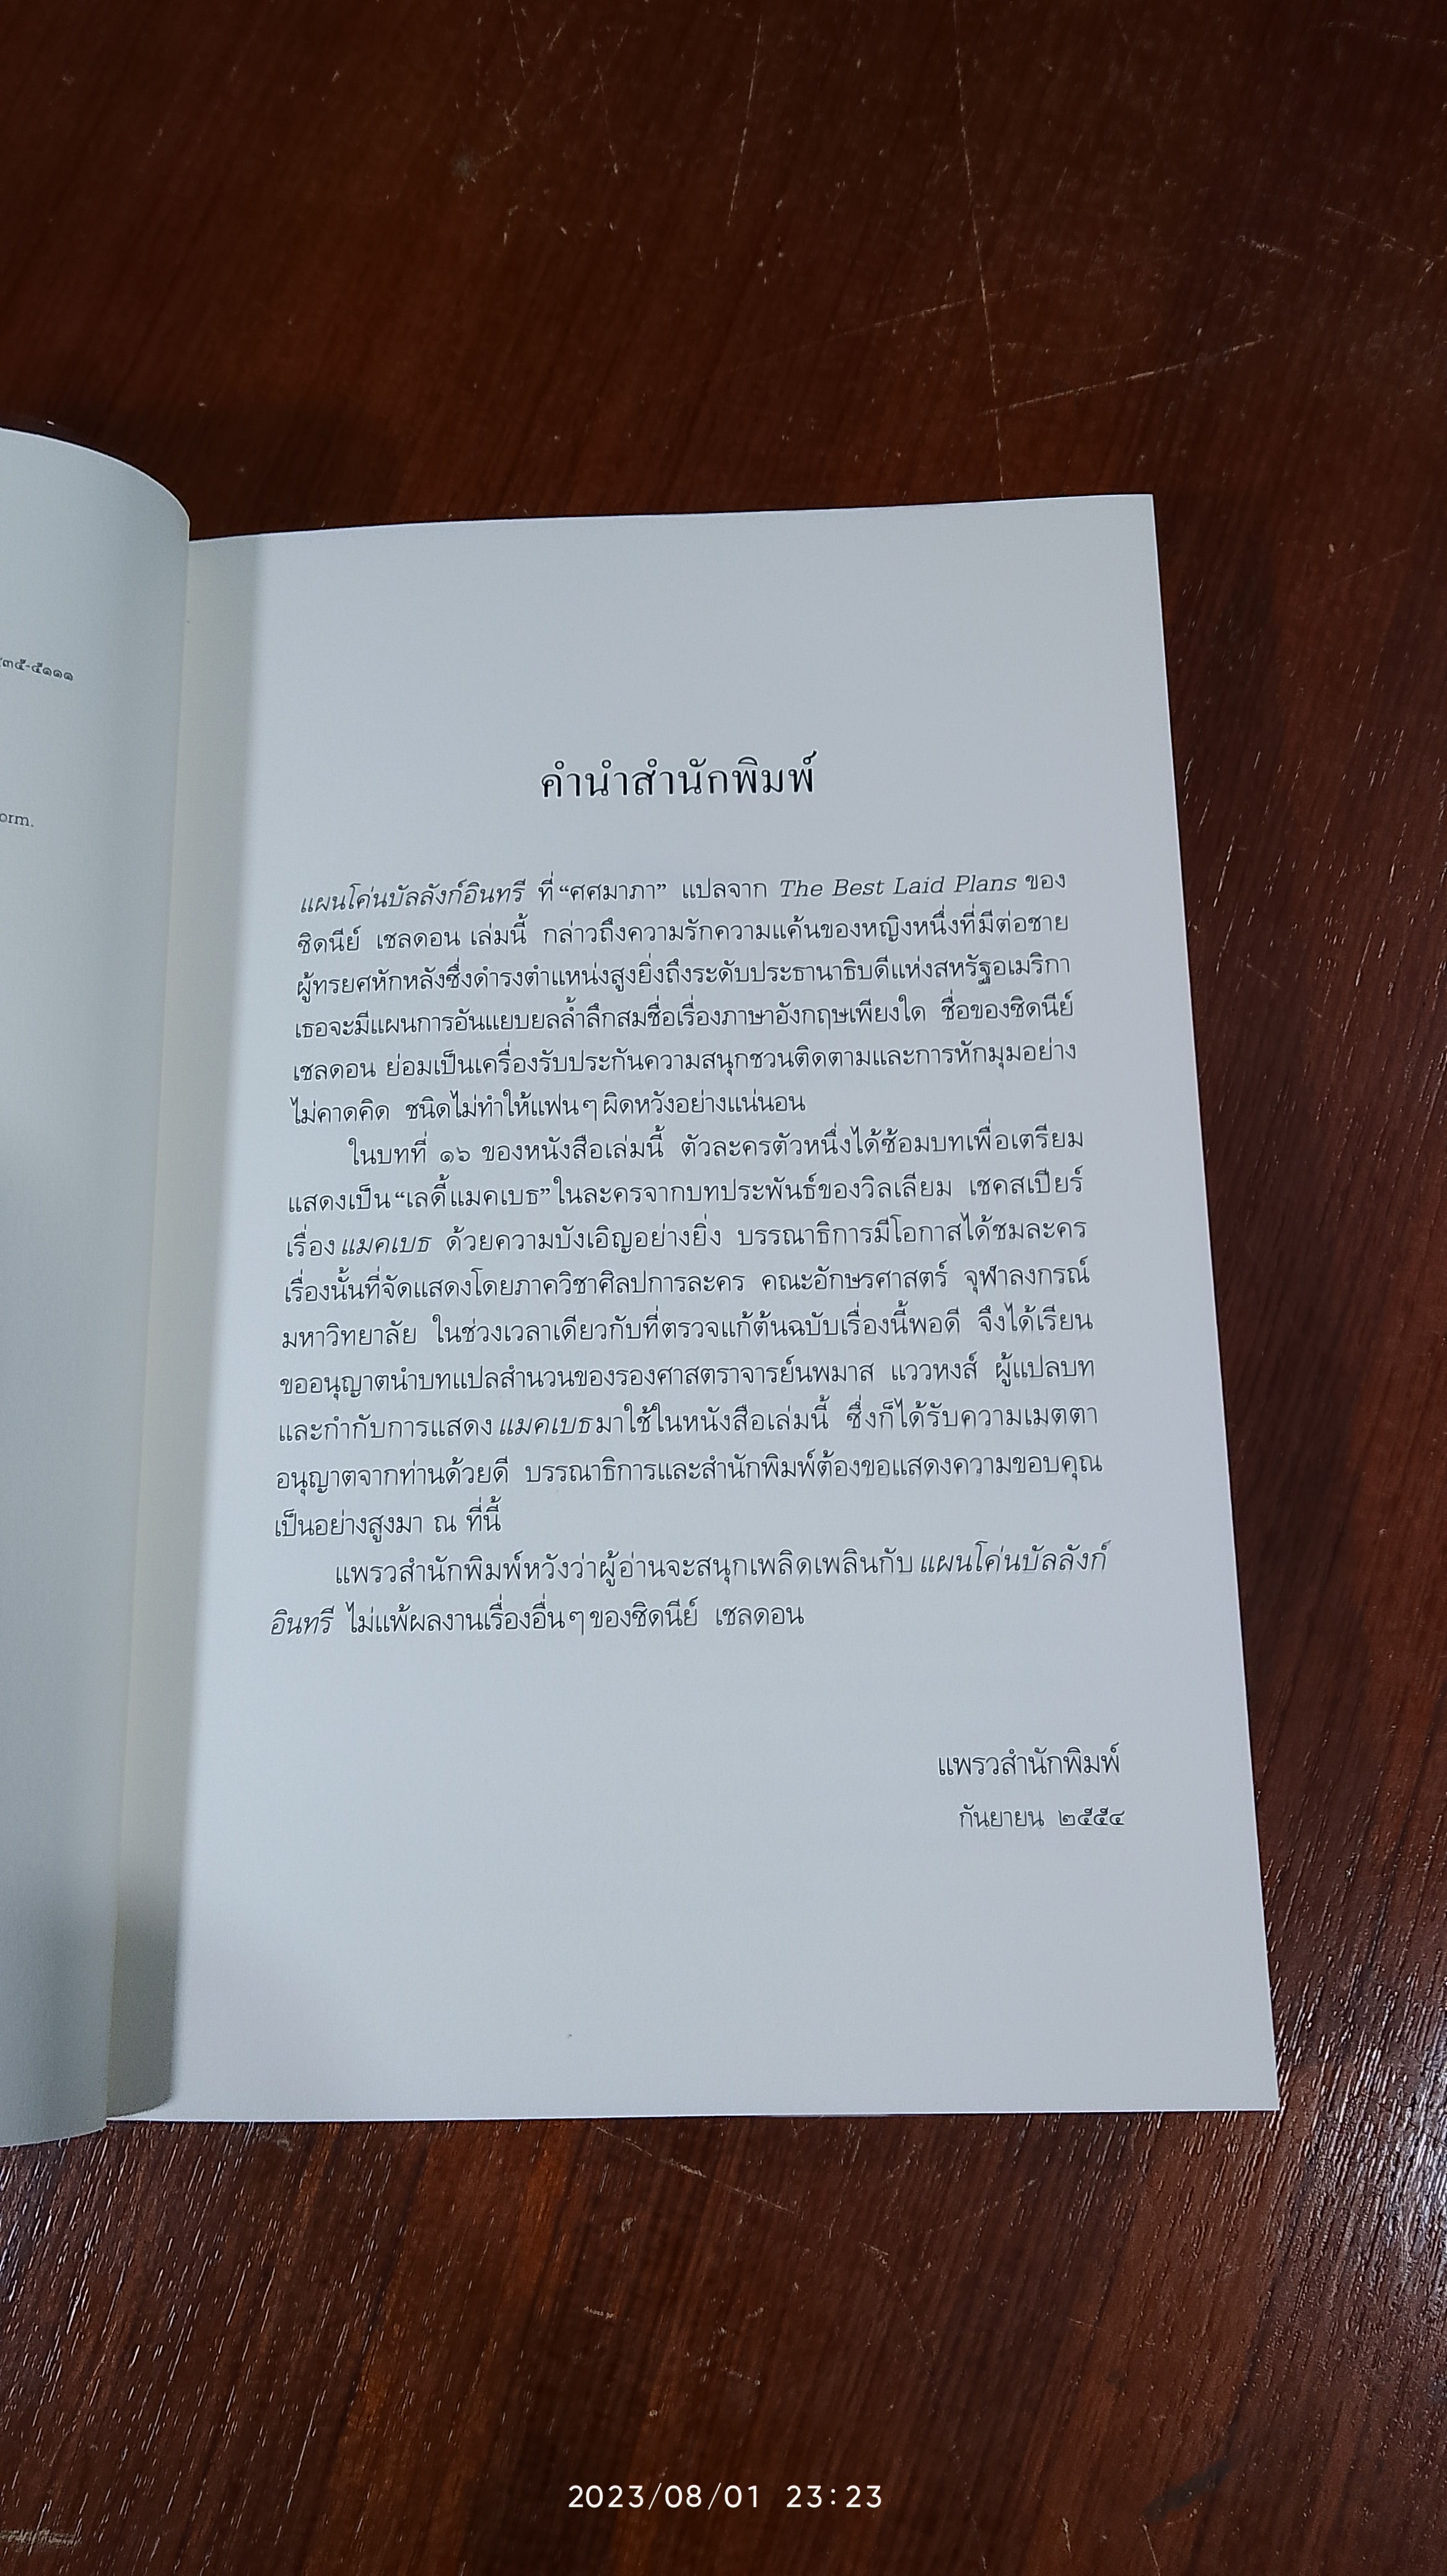 ๓๕-๕๑๑๑
orm.
คำนำสำนักพิมพ์
แผนโค่นบัลลังก์อินทรี ที่ “ศศมาภา” แปลจาก The Best Laid Plans ของ
ซิดนีย์ เชลดอน เล่มนี้ กล่าวถึงความรักความแค้นของหญิงหนึ่งที่มีต่อชาย
ผู้ทรยศหักหลังซึ่งดำรงตำแหน่งสูงยิ่งถึงระดับประธานาธิบดีแห่งสหรัฐอเมริกา
เธอจะมีแผนการอันแยบยลล้ำลึกสมชื่อเรื่องภาษาอังกฤษเพียงใด ชื่อของซิดนีย์
เชลดอน ย่อมเป็นเครื่องรับประกันความสนุกชวนติดตามและการหักมุมอย่าง
ไม่คาดคิด ชนิดไม่ทำให้แฟนๆ ผิดหวังอย่างแน่นอน
ในบทที่ ๑๖ ของหนังสือเล่มนี้ ตัวละครตัวหนึ่งได้ซ้อมบทเพื่อเตรียม
แสดงเป็น “เลดี้แมคเบธ” ในละครจากบทประพันธ์ของวิลเลียม เชคสเปียร์
เรื่อง แมคเบธ ด้วยความบังเอิญอย่างยิ่ง บรรณาธิการมีโอกาสได้ชมละคร
เรื่องนั้นที่จัดแสดงโดยภาควิชาศิลปการละคร คณะอักษรศาสตร์ จุฬาลงกรณ์
มหาวิทยาลัย ในช่วงเวลาเดียวกับที่ตรวจแก้ต้นฉบับเรื่องนี้พอดี จึงได้เรียน
ขออนุญาตนำบทแปลสำนวนของรองศาสตราจารย์นพมาส แววหงส์ ผู้แปลบท
และกำกับการแสดง แมคเบธ มาใช้ในหนังสือเล่มนี้ ซึ่งก็ได้รับความเมตตา
อนุญาตจากท่านด้วยดี บรรณาธิการและสำนักพิมพ์ต้องขอแสดงความขอบคุณ
เป็นอย่างสูงมา ณ ที่นี้
แพรวสำนักพิมพ์หวังว่าผู้อ่านจะสนุกเพลิดเพลินกับ แผนโค่นบัลลังก์
อินทรี ไม่แพ้ผลงานเรื่องอื่นๆ ของซิดนีย์ เชลดอน
แพรวสำนักพิมพ์
กันยายน ๒๕๕๔
2023/08/01 23:23